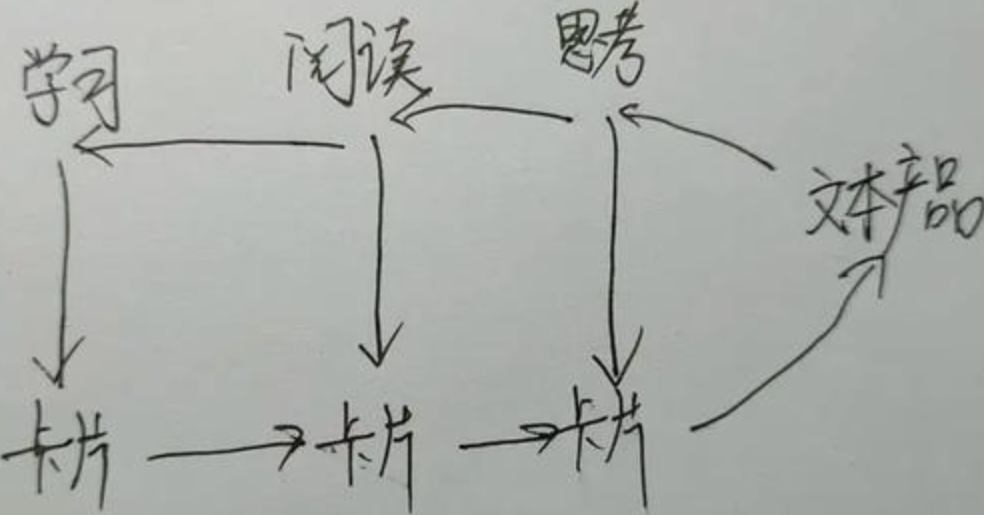 学习 阅读 思考
文本产品
卡片 卡片 卡片